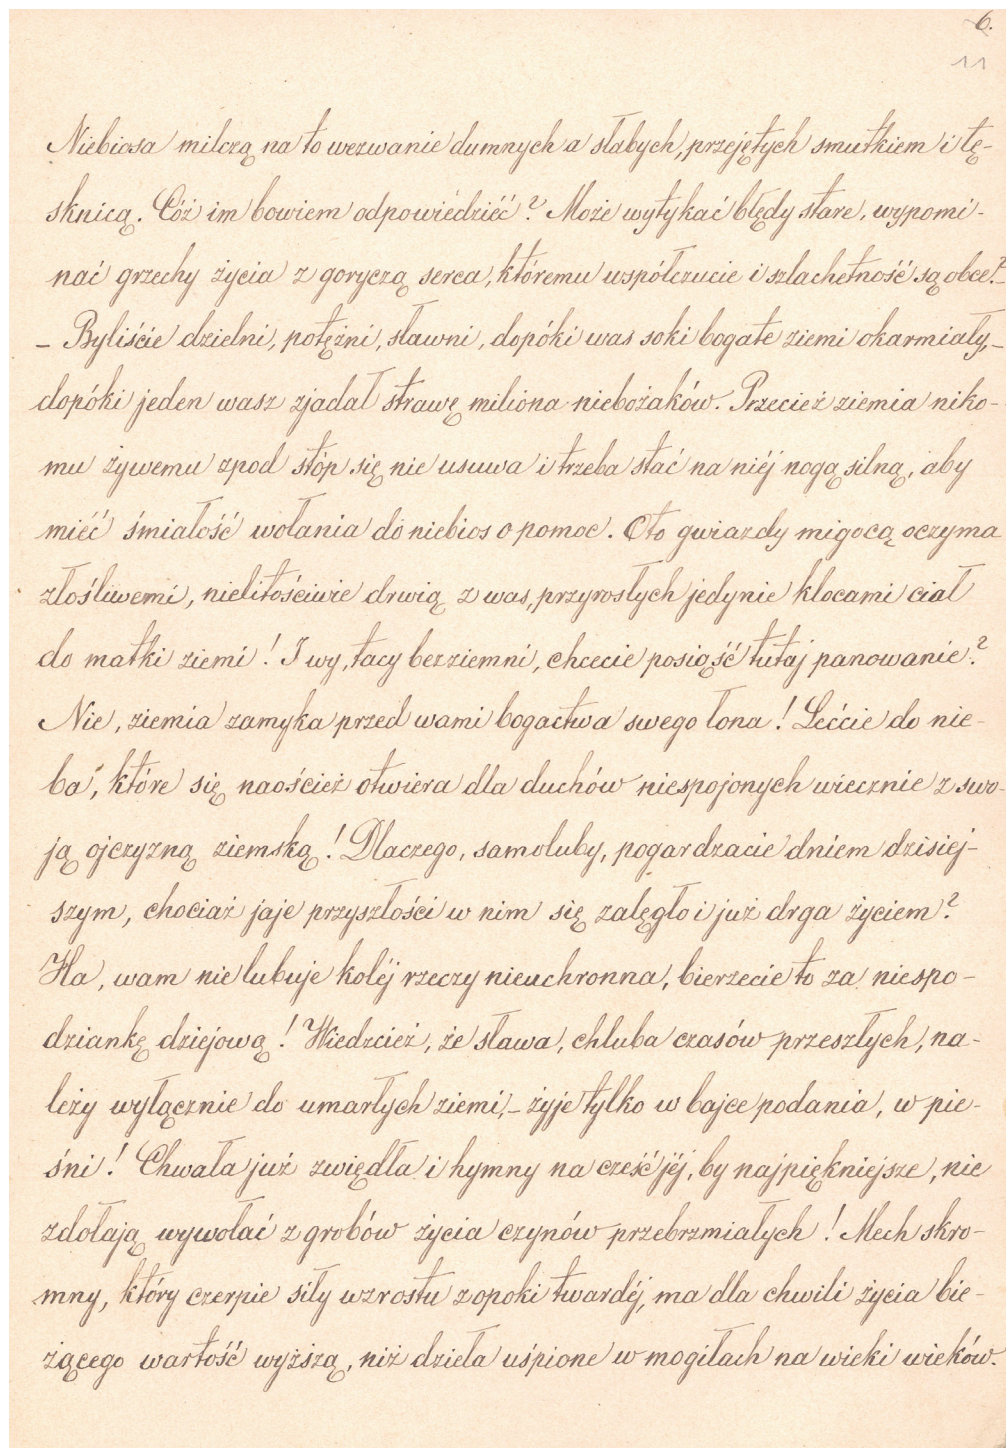 6.
11
Niebiosa milczą na to wezwanie dumnych a słabych, przejętych smutkiem i tę-
sknicą. Cóż im bowiem odpowiedziéć? Może wytykać błędy stare, wypomi-
nać grzechy życia z goryczą serca, któremu współczucie i szlachetność są obce?_
_ Byliście dzielni, potężni, sławni, dopóki was soki bogate ziemi okarmiały,_
dopóki jeden wasz zjadał strawę miliona niebożaków. Przecież ziemia niko-
mu żywemu zpod stóp się nie usuwa i trzeba stać na niéj nogą silną, aby
miéć śmiałość wołania do niebios o pomoc. Oto gwiazdy migocą oczyma
złośliwemi, nielitościwie drwią z was, przyrosłych jedynie kłocami ciał
do matki ziemi! I wy, tacy bezziemni, chcecie posiąść tutaj panowanie?
Nie, ziemia zamyka przed wami bogactwa swego łona! Lećcie do nie-
ba, które się naoścież otwiera dla duchów niespojonych wiecznie z swo-
ją ojczyzną ziemską! Dlaczego, samoluby, pogardzacie dniem dzisiej-
szym, chociaż jaje przyszłości w nim się zalęgło i już drga życiem?
Ha, wam nie lubuje koléj rzeczy nieuchronna, bierzecie to za niespo-
dziankę dziejową! Wiedzcież, że sława, chluba czasów przeszłych, na-
leży wyłącznie do umarłych ziemi,_ żyje tylko w bajce podania, w pie-
śni! Chwała już zwiędła i hymny na cześć jéj, by najpiękniejsze, nie
zdołają wywołać z grobów życia czynów przebrzmiałych! Mech skro-
mny, który czerpie siły wzrostu z opoki twardéj, ma dla chwili życia bie-
żącego wartość wyższą, niż dzieła uśpione w mogiłach na wieki wieków.